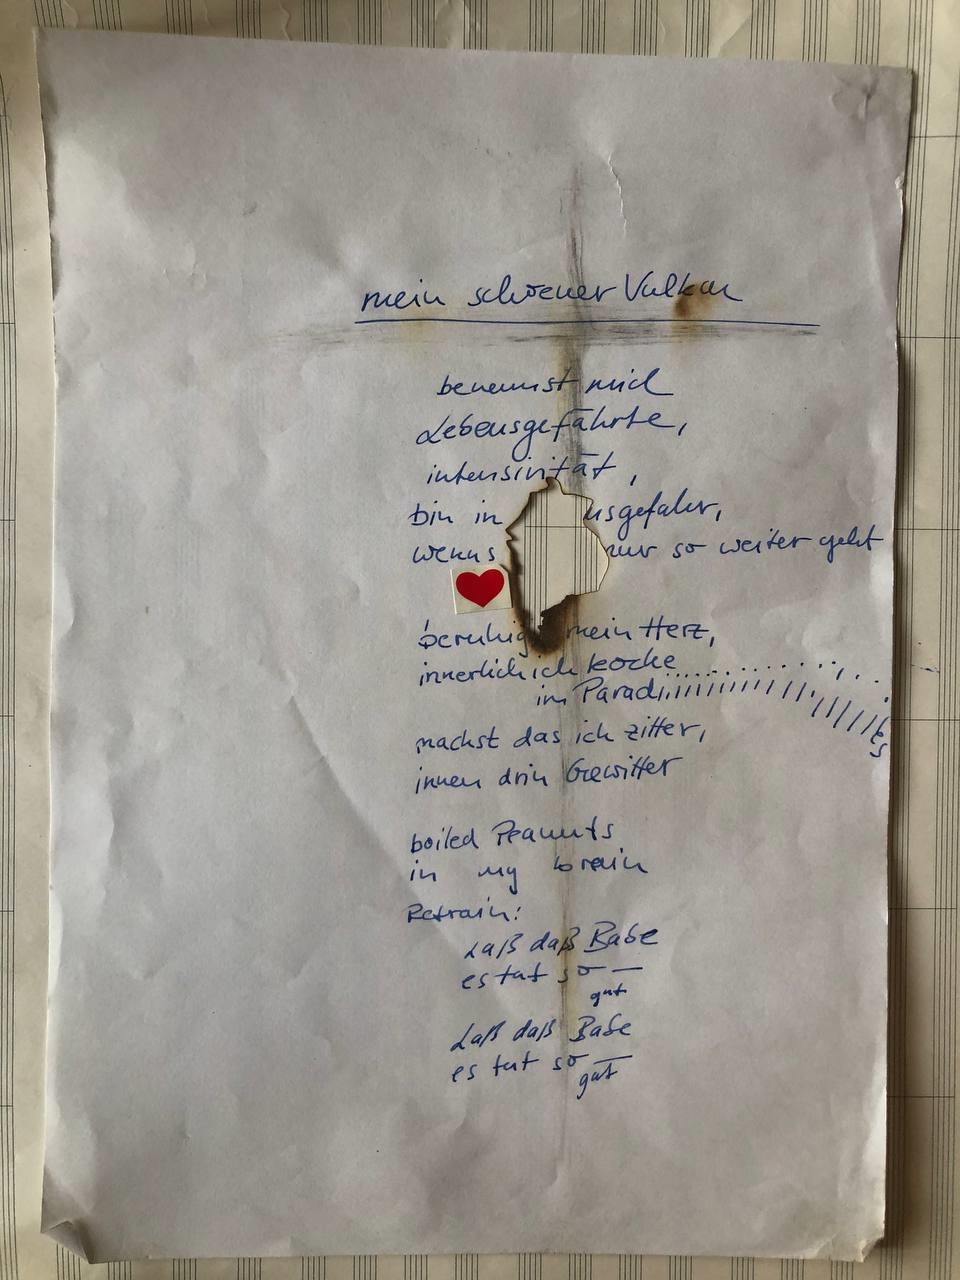 mein schoener Vulkan
benennst mich
Lebensgefährte,
intensivität,
bin in usgefahr,
wenns nur so weiter geht
beruhig mein Herz,
innerlich ich koche..............
im Paradiiiiiiiiiiiiiiiiiiies
machst das ich zitter,
innen drin Gewitter
boiled Peanuts
in my brain
Refrain:
Laß daß Babe
es tut so —
gut
Laß daß Babe
es tut so —
gut